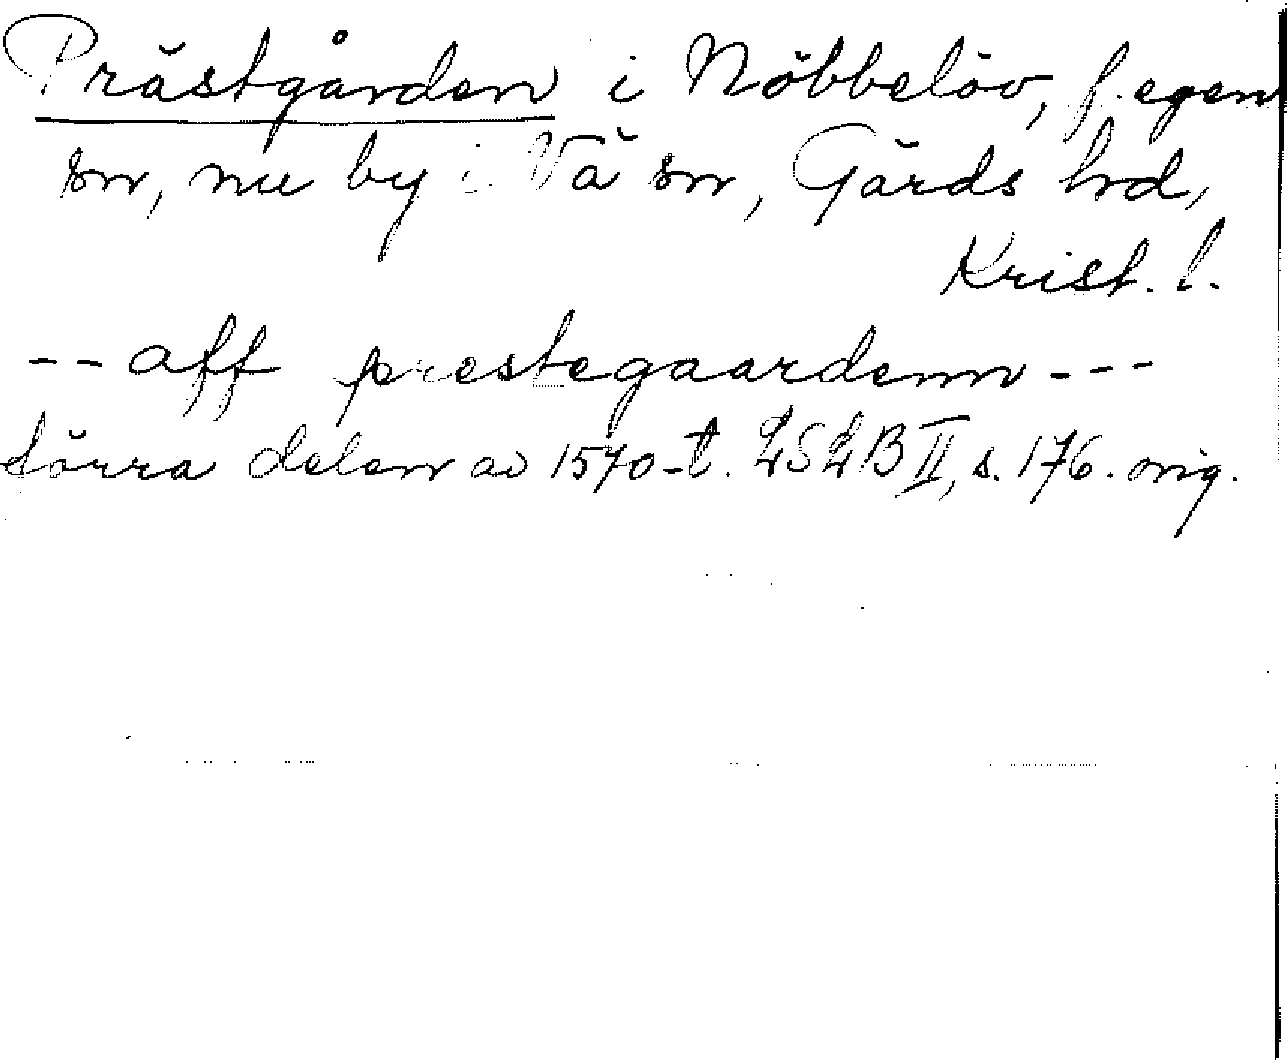 Prästgården i Nöbbelöv, f. egen
sn, nu by i Vä sn, Gärds hd,
Krist. l.
-- aff prestegaardenn ---
förra delen av 1570-t. LSLB II, s. 176. orig.